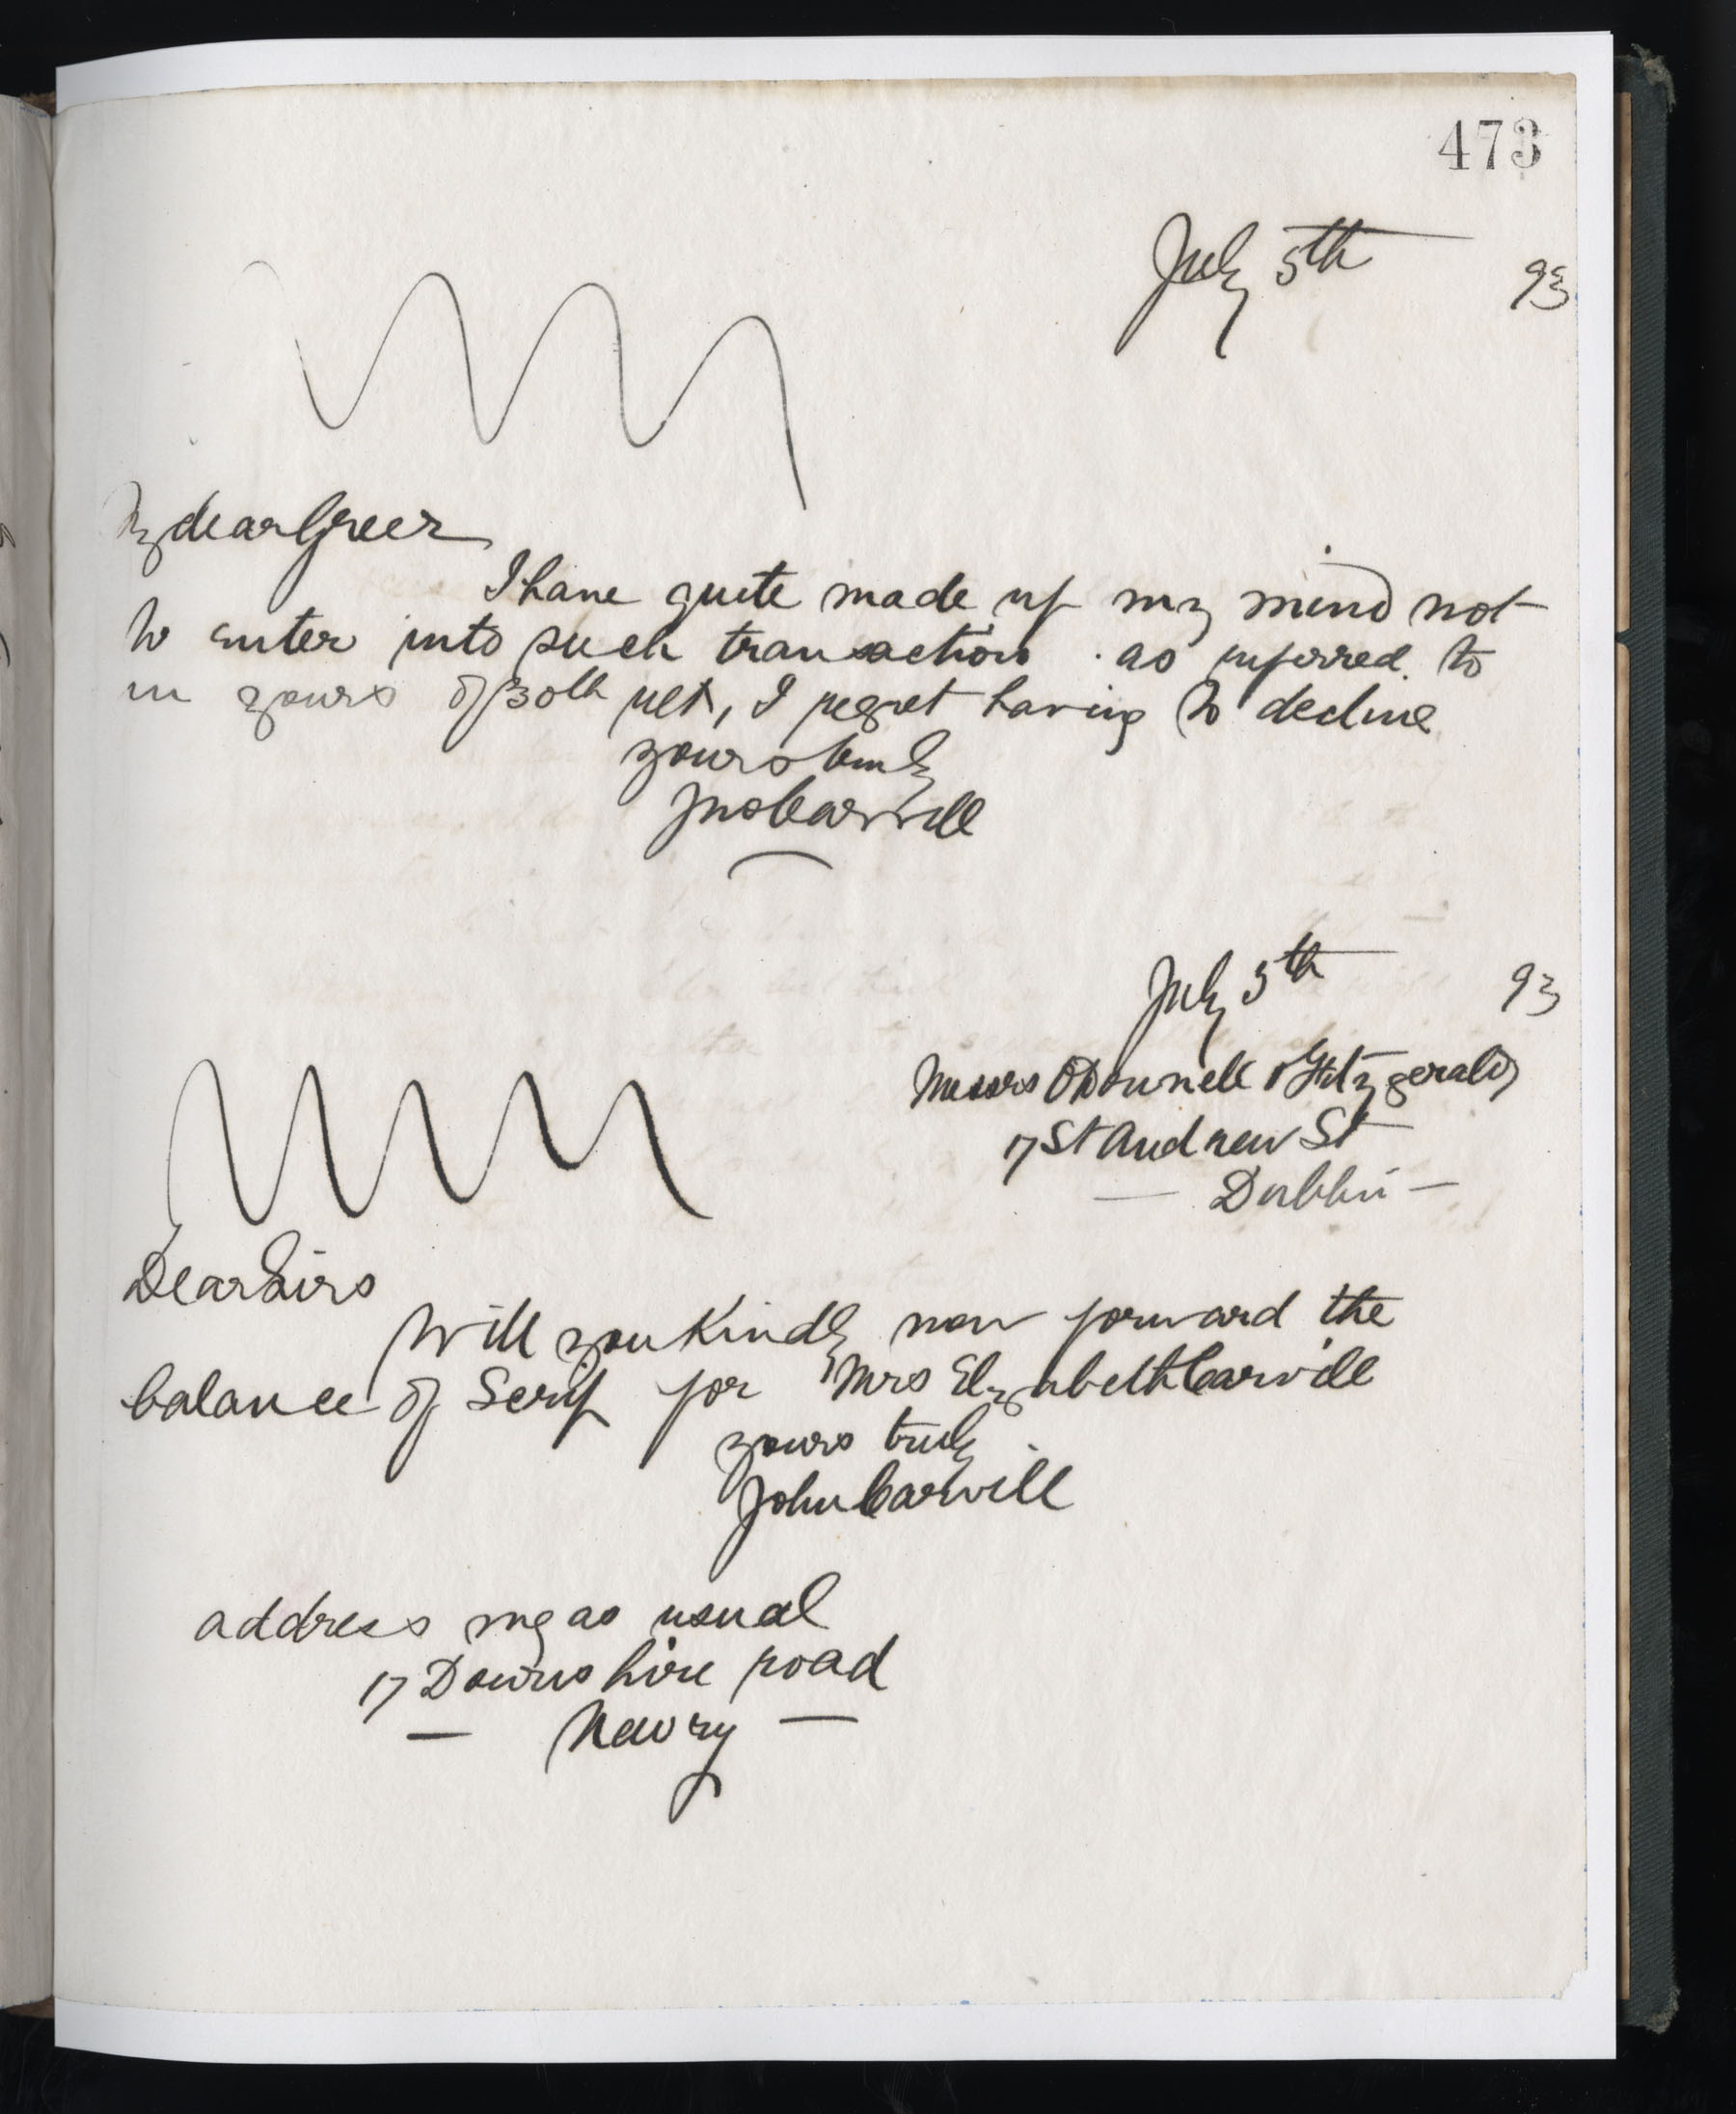 473
July 5th 93
My dear Greer
I have quite made up my mind not
to enter into such transaction as referred to
in yours of 30th ult, I regret having to decline
yours truly
Jno Carvill
July 5th 93
Messrs ODonnell & Fitzgerald
17 St Andrew St
— Dublin —
Dear Sirs
Will you kindly now forward the
balance of Scrip for Mrs Elizabeth Carvill
yours truly
John Carvill
address me as usual
17 Downshire road
— Newry —